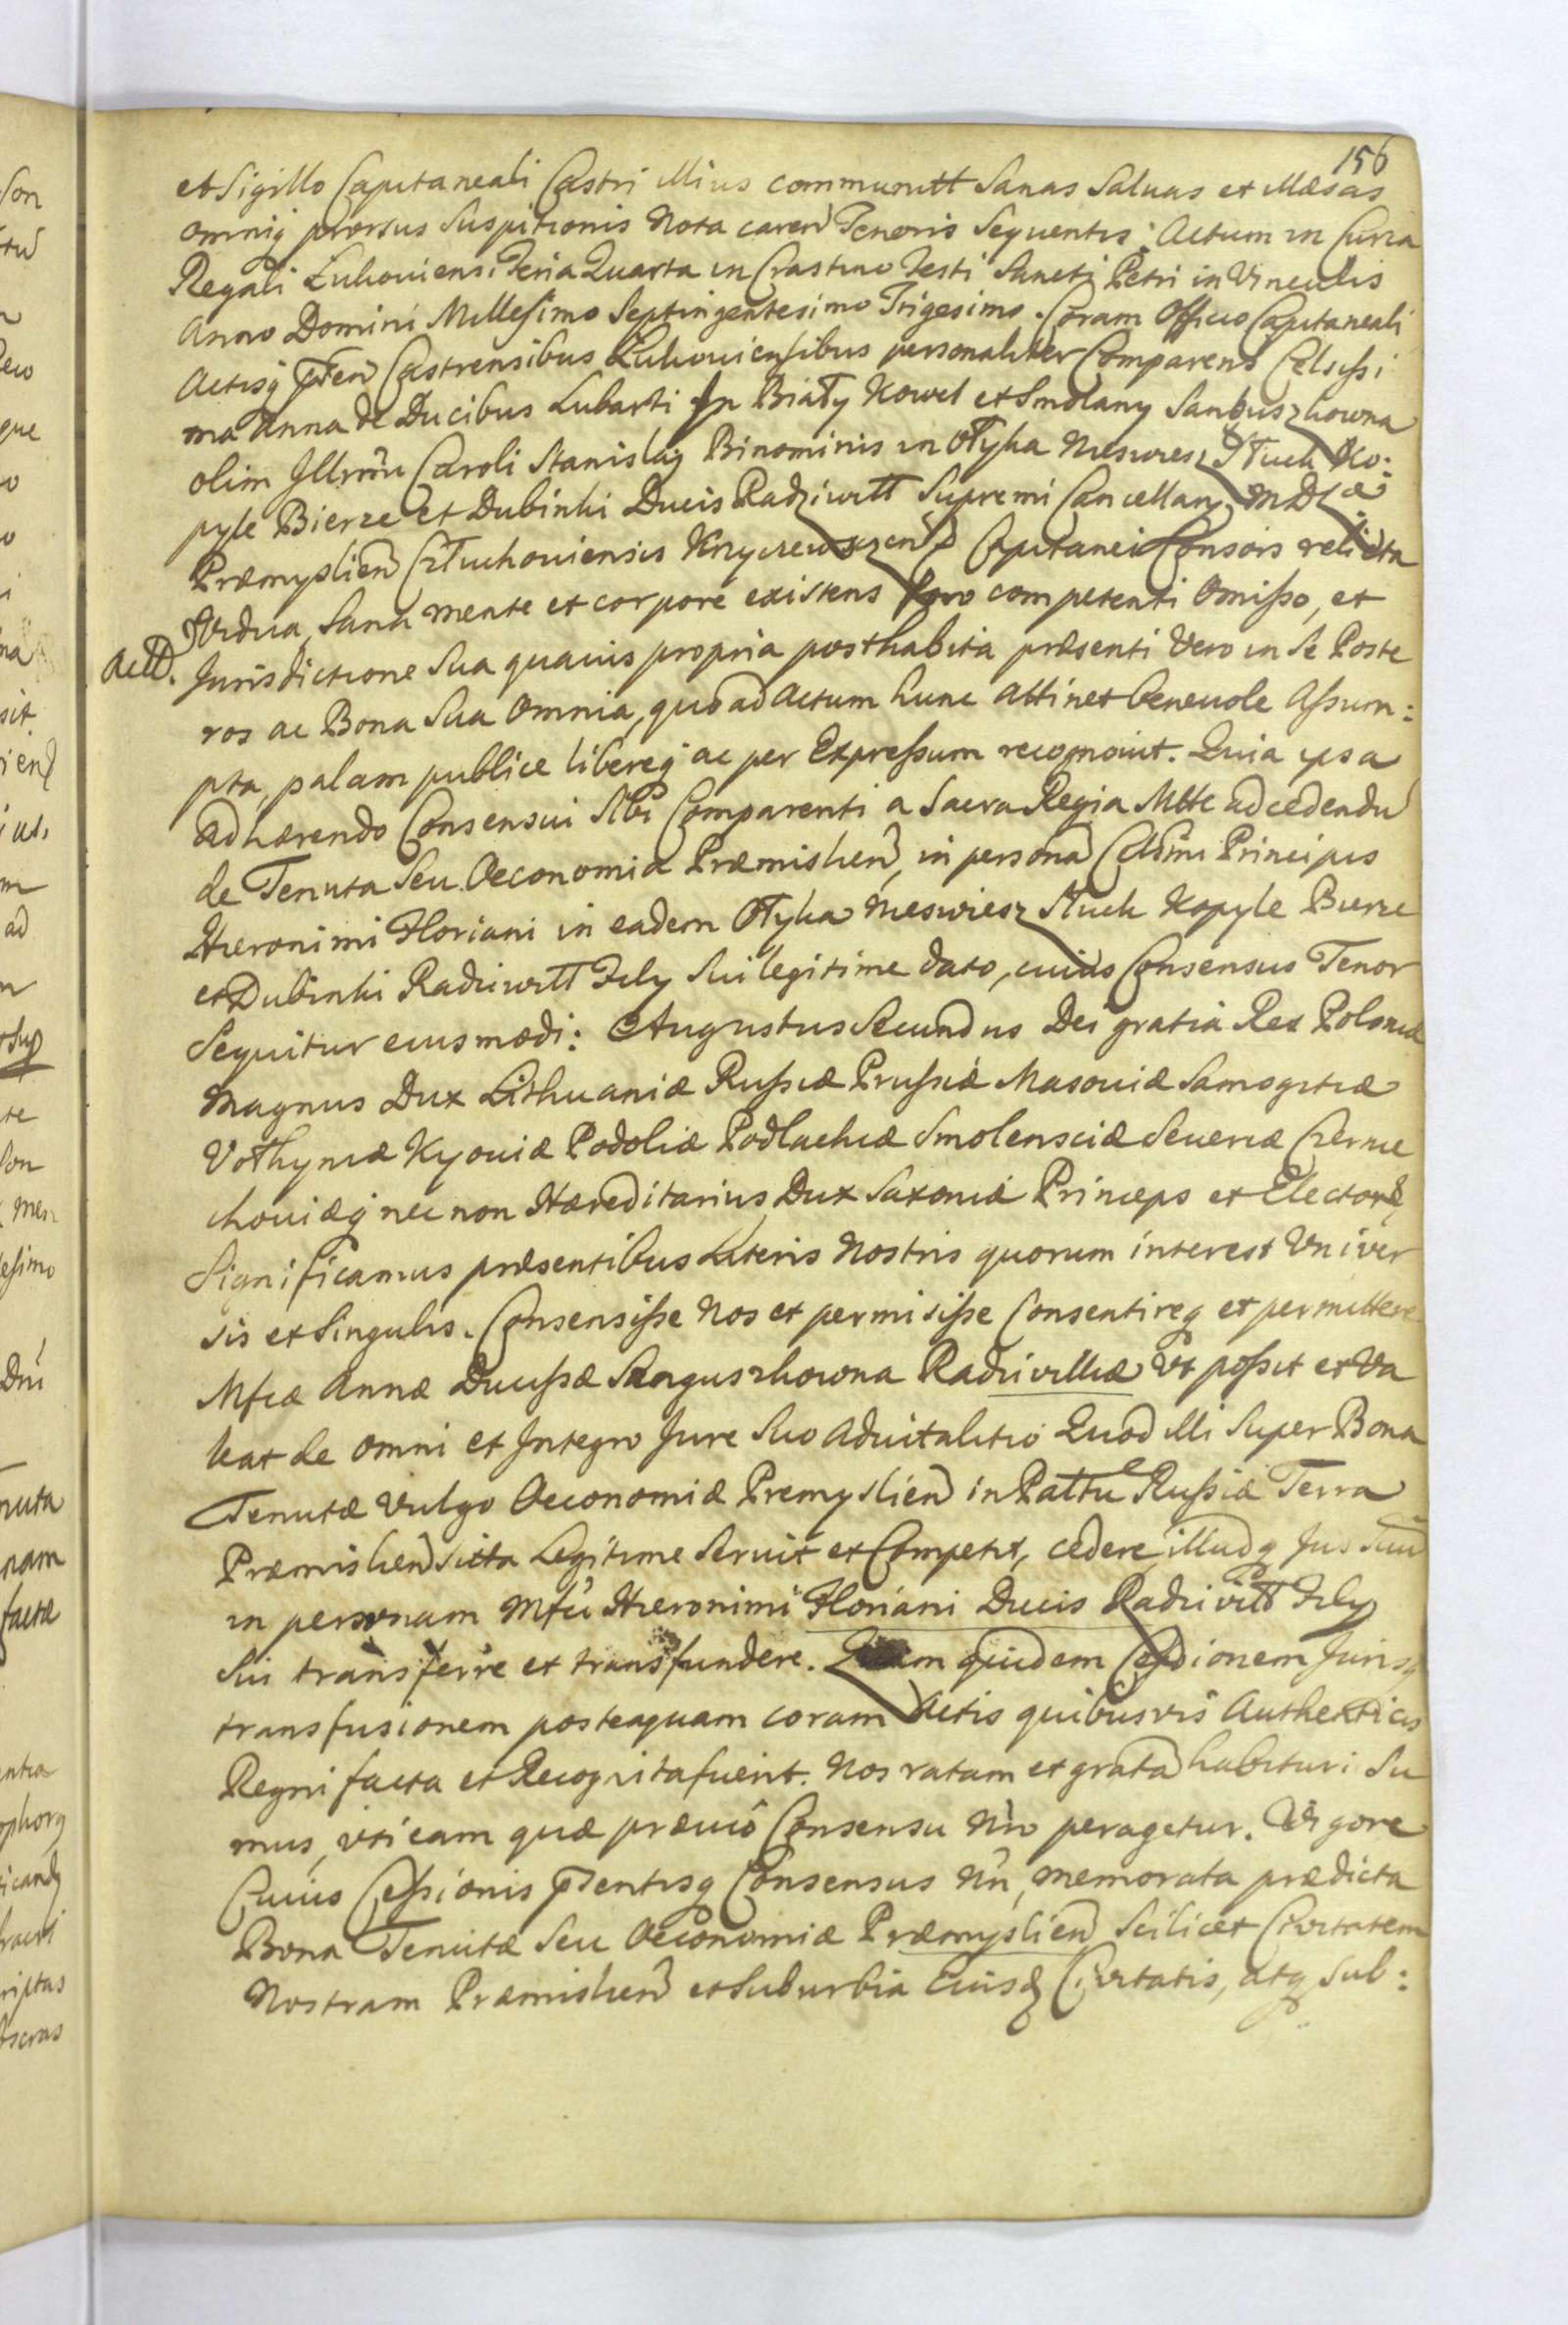 156
et Sigillo Capitaneali Castri illius communitt Sanas Saluas et illæsas
omniq prorsus Suspitionis Nota caren Tenoris Sequentis: Actum in Curia
Regali Lukouiensi Feria Quarta in Crastino Festi Sancti Petri in Vinculis
Anno Domini Millesimo Septingentesimo Trigesimo. Coram Officio Capitaneali
Actisq pñ̃ten Castrensibus Lukouiensibus personaliter Comparens Celsissi
ma Anna de Ducibus Lubarti In Biały Kowel et Smolany Sanguszkowna
olim Jllrmi Caroli Stanislaij Binominis in Ołyka Nieswiesz Słuck Ko:
pyle Bierze et Dubinki Ducis Radziwiłł Supremi Cancellarij M D L
Præmyslien Człuchouiensis Krzyczewszcen Capitanei Consors relicta
Vidua, Sana mente et corpore existens foro competenti Omisso, et
Actt. Jurisdictione Sua quauis propria posthabita præsenti Vero in Se Poste
ros ac Bona Sua Omnia, quoad actum hunc attinet beneuole Assum:
pta, palam publice libereq ac per Expressum recognouit. Quia ipsa
adhærendo Consensui Sibi Comparenti a Sacra Regia Mtte ad cedendũ
de Tenuta Seu Oeconomia Præmislien, in persona Celsmi Principis
Hieronimi Floriani in eadem Ołyka Nieswiesz Słuck Kopyle Bierze
et Dubinki Radziwiłł Filij Sui legitime dato, cuius Consensus Tenor
Sequitur eiusmodi: Augustus Secundus Dei gratia Rex Poloniæ
Magnus Dux Lithuaniæ Russiæ Prussiæ Masouiæ Samogitiæ
Vołhyniæ Kyouiæ Podoliæ Podlachiæ Smolensciæ Seueriæ Czernie
chouiæq nec non Hæreditarius Dux Saxoniæ Princeps et Elector
Significamus præsentibus Literis Nostris quorum interest Vniver
sis et Singulis. Consensisse Nos et permisisse Consentireq et permittere
Mfcæ Annæ Ducissæ Sanguszkowna Radziuilliæ Vt possit et Va
leat de omni et Integro Jure Suo aduitalitio Quod illi Super Bona
Tenutæ Vulgo Oeconomiæ Premyslien in Pałttu Russiæ Terra
Præmislien sitta Legitime Seruit et Competit, cedere, illudq Jus Suũ
in personam Mfci Hieronimi Floriani Ducis Radziwiłł Filij
Sui transferre et transfundere. Quam quidem Cessionem Jurisq
transfusionem posteaquam coram Actis quibusvis Authenticis
Regni facta et Recognita fuerit. Nos ratam et gratã habituri Su
mus, uti eam quæ præuiô Consensu Nro peragetur. Vigore
Cuius Cessionis pñtentisq Consensus Nri, memorata prædicta
Bona Tenutæ Seu Oeconomiæ Præmyslien Scilicet Ciuitatem
Nostram Præmislien et Suburbia Eiusd Ciuitatis, atq Sub: